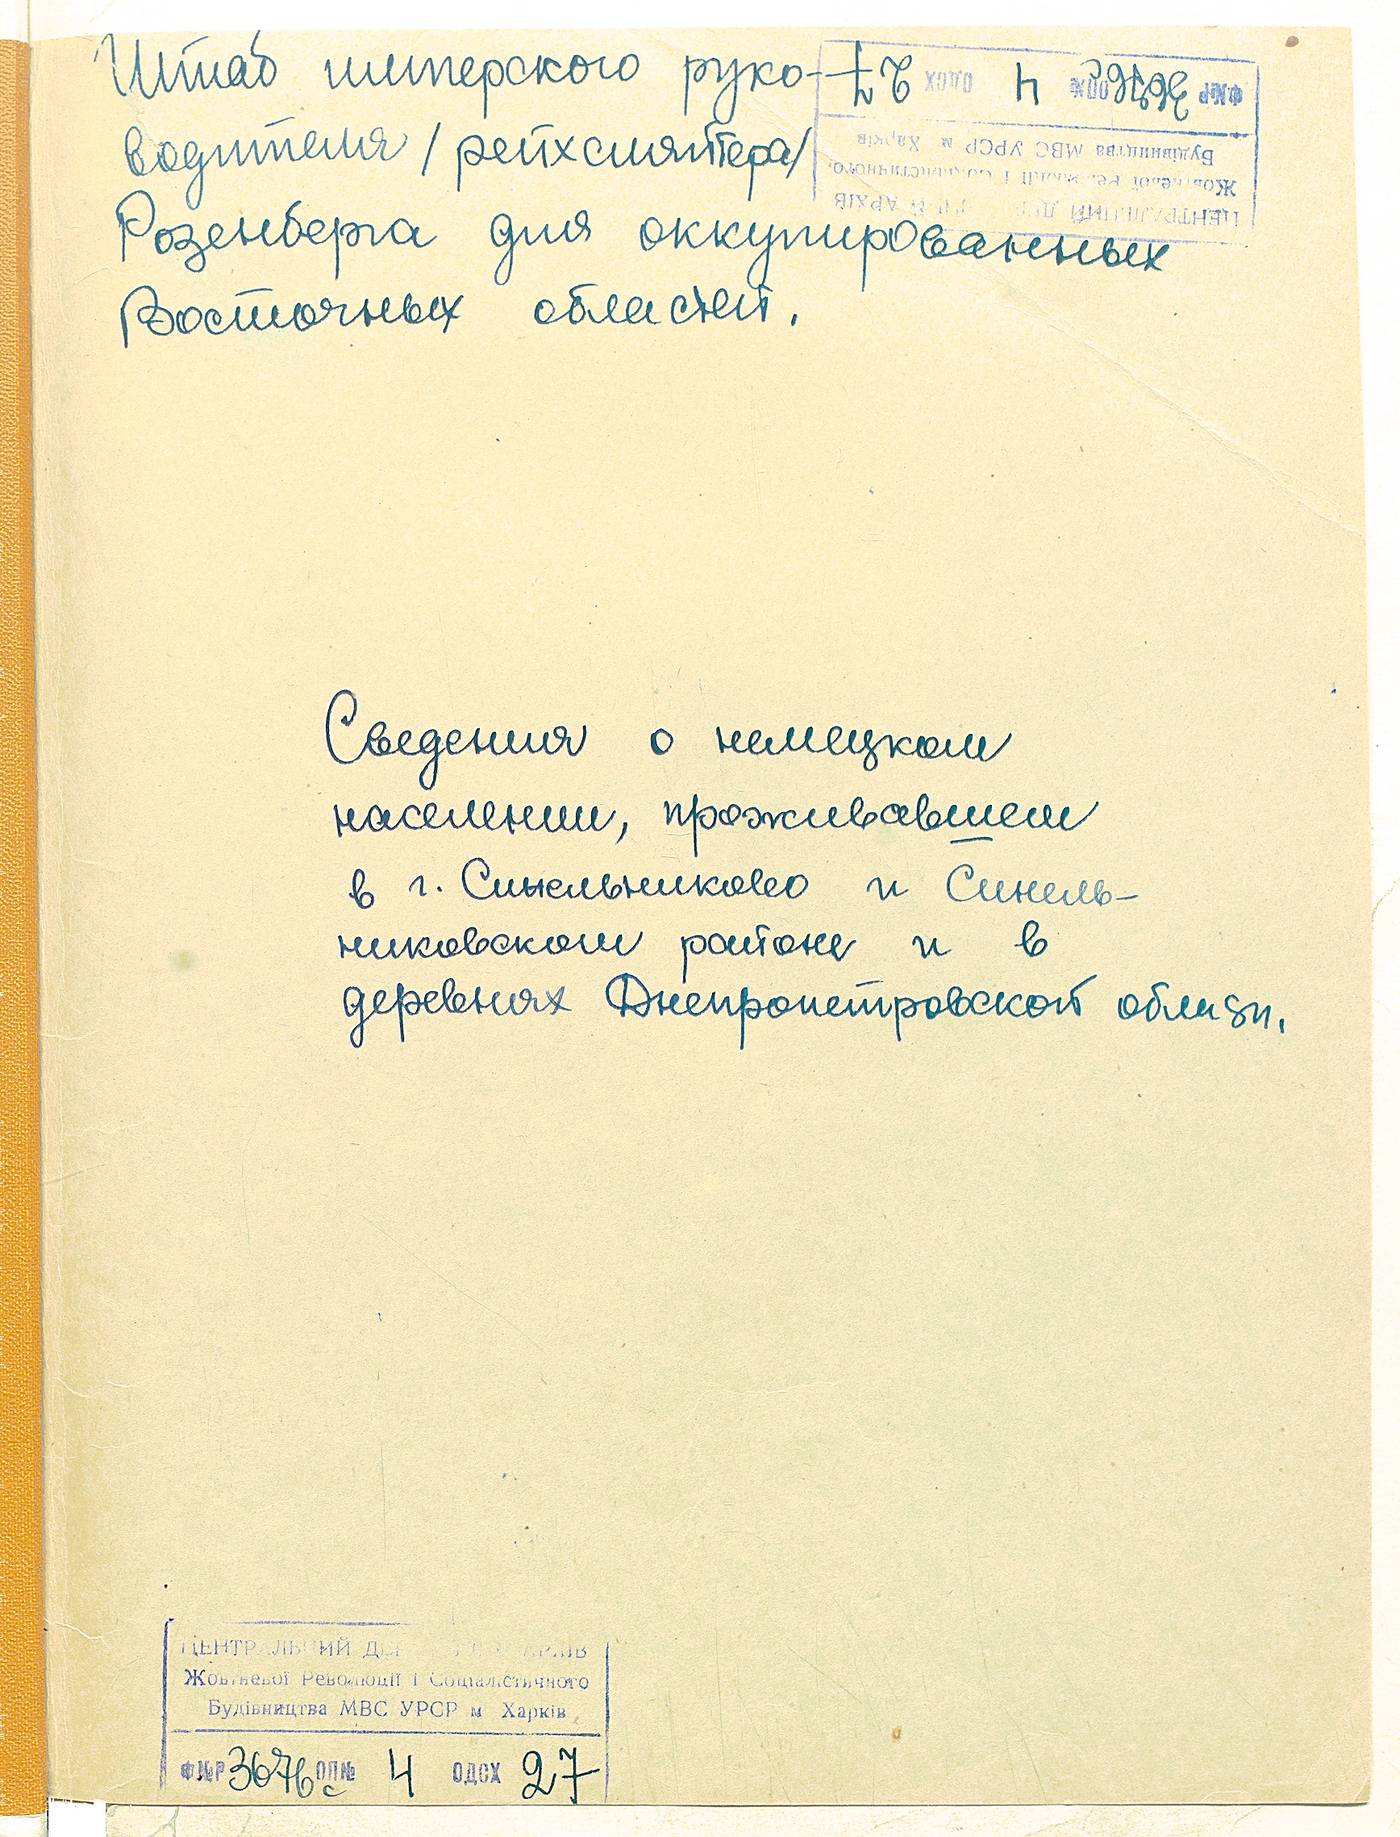 Штаб имперского руко-
водителя /рейхсляйтера/
Розенберга для оккупированных
Восточных областей.
ФNР 3676с ОПN 4 ОДСХ 27
ЦЕНТРАЛЬНИЙ АРХІВ
Жовтневої Революції і Соціалістичного
Будівництва МВС УРСР м Харків
Сведения о немецком
населении, проживавшем
в г. Синельниково и Синель-
никовском районе и в
деревнях Днепропетровской области.
ЦЕНТРАЛЬНИЙ АРХІВ
Жовтневої Революції і Соціалістичного
Будівництва МВС УРСР м Харків
ФNР 3676с ОПN 4 ОДСХ 27